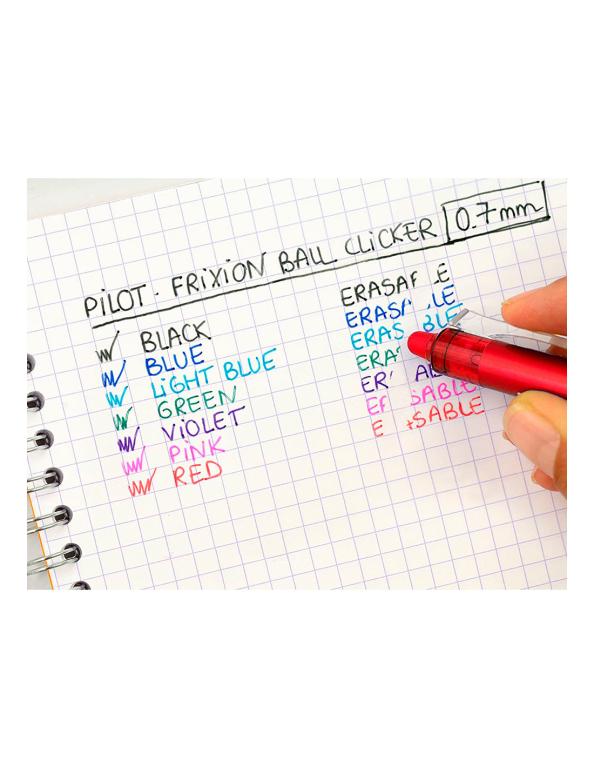 PILOT. FRIXION BALL CLICKER 0.7mm
BLACK
BLUE
LIGHT BLUE
GREEN
VIOLET
PINK
RED
ERASA E
ERAS LE
ERAS BLE
ERA
ER A
EF SABLE
E SABLE